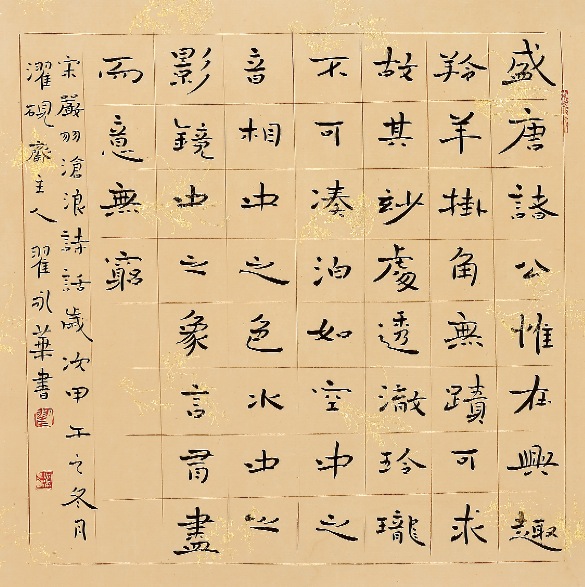 盛唐諸公惟在興趣
羚羊掛角無蹟可求
故其玅處透澈玲瓏
不可湊泊如空中之
音相中之色水中之
影鏡中之象言有盡
而意無窮
宋嚴羽滄浪詩話歲次甲午之冬月
濯硯齋主人翟永華書